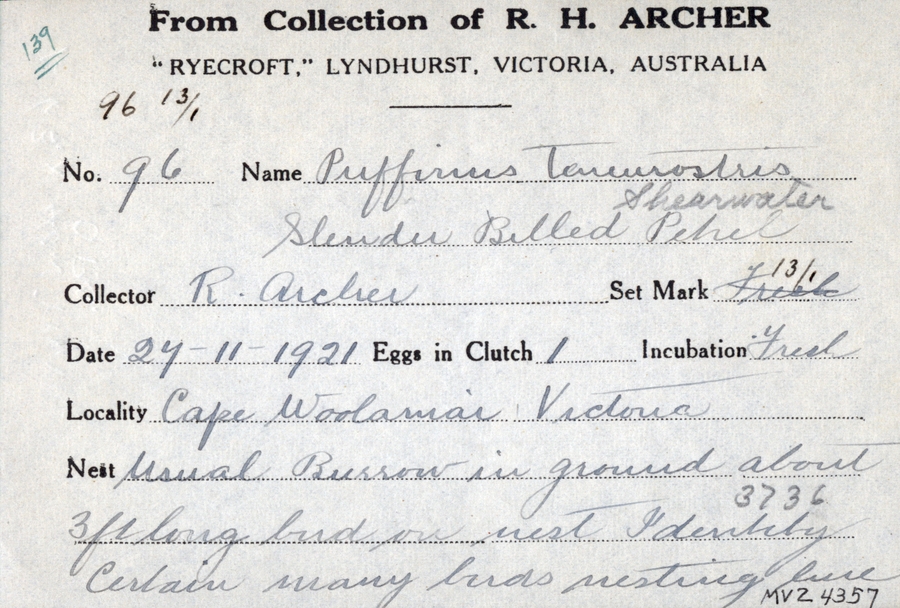 139
From Collection of R. H. ARCHER
"RYECROFT," LYNDHURST, VICTORIA, AUSTRALIA
96 13/1
No. 96 Name Puffinus Tenuirostris
Shearwater
Slender Billed Petrel
13/1
Collector R. Archer Set Mark Fresh
Date 27-11-1921 Eggs in Clutch 1 Incubation Fresh
Locality Cape Woolamai Victoria
Nest Usual Burrow in ground about
3736
3ft long bird on nest Identity
Certain many birds nesting here
MVZ 4357